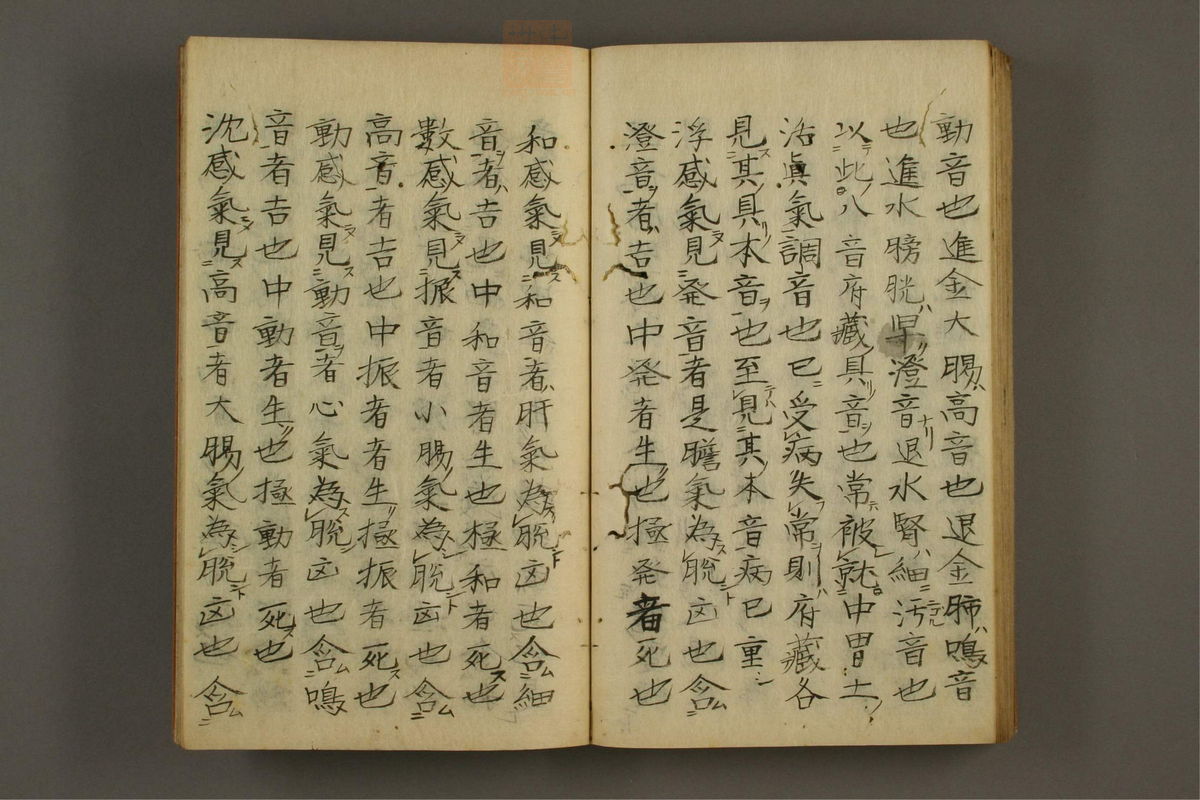 動音也進金大腸高音也退金肺鳴音
也進水膀胱早澄音退水腎細汚音也
以此八音府藏具音也常被就中胃土
治真氣調音也已受病失常則府藏各
見其具本音也至見其本音病已重
浮感氣見発音者是膽氣為脱凶也含
澄音者吉也中発者生也極発者死也
和感氣見和音者肝氣為脱凶也含細
音者吉也中和音者生也極和者死也
數感氣見振音者小腸氣為脱凶也含
高音者吉也中振者者生極振者死也
動感氣見動音者心氣為脱凶也含鳴
音者吉也中動者生也極動者死也
沈感氣見高音者大腸氣為脱凶也含